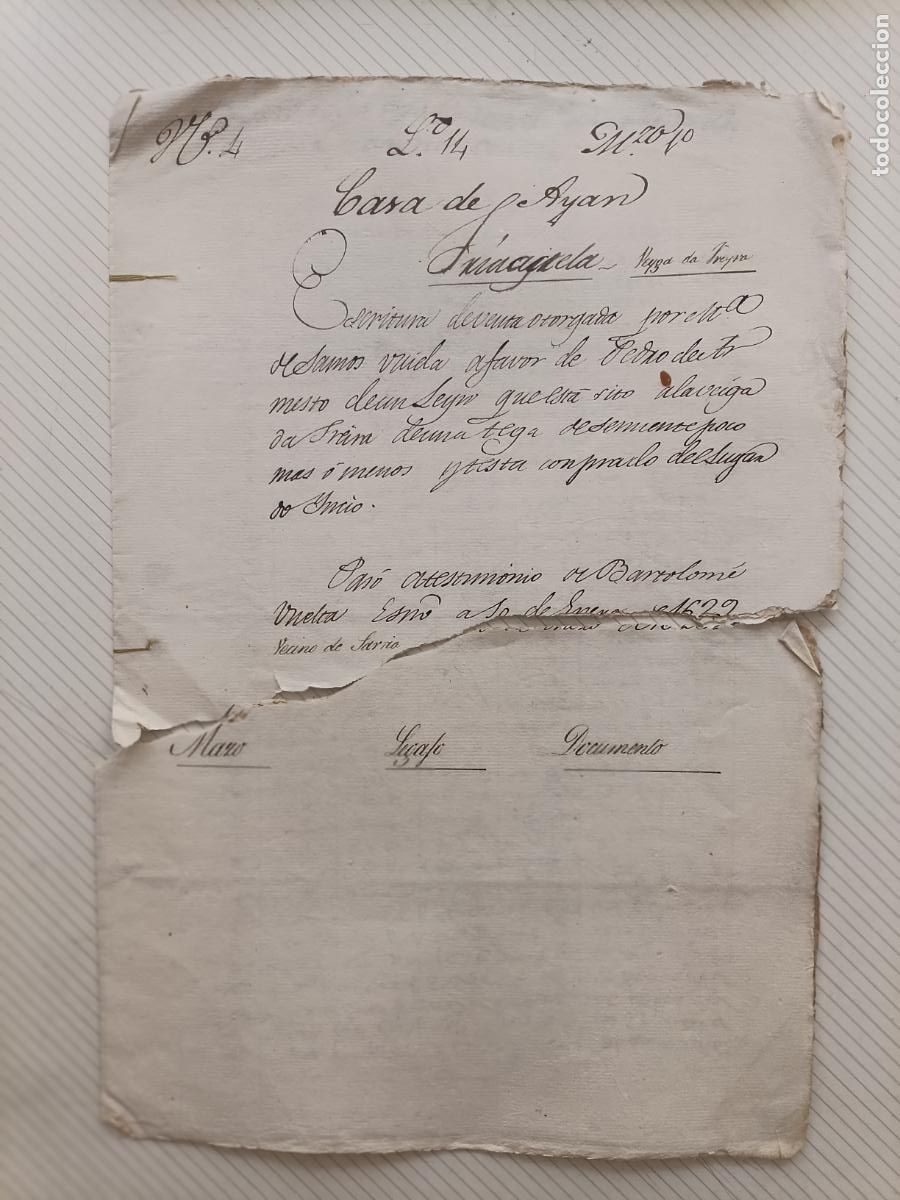 Nº. 4 L.º 14 M.zo 10
Casa de Ayan
Veyga da Freyra
Escritura de venta otorgada por Mª
de Samos viuda a favor de Pedro de Ar
mesto de un Leyro que está sito a la veiga
da Freira de una tega de semiente poco
mas ó menos y testa con prado del Lugar
do Incio.
Pasó a testimonio de Bartolomé
Vuelta Esno a 10 de Enero de 1622
Vecino de Sarria
Mazo Legajo Documento
todocoleccion